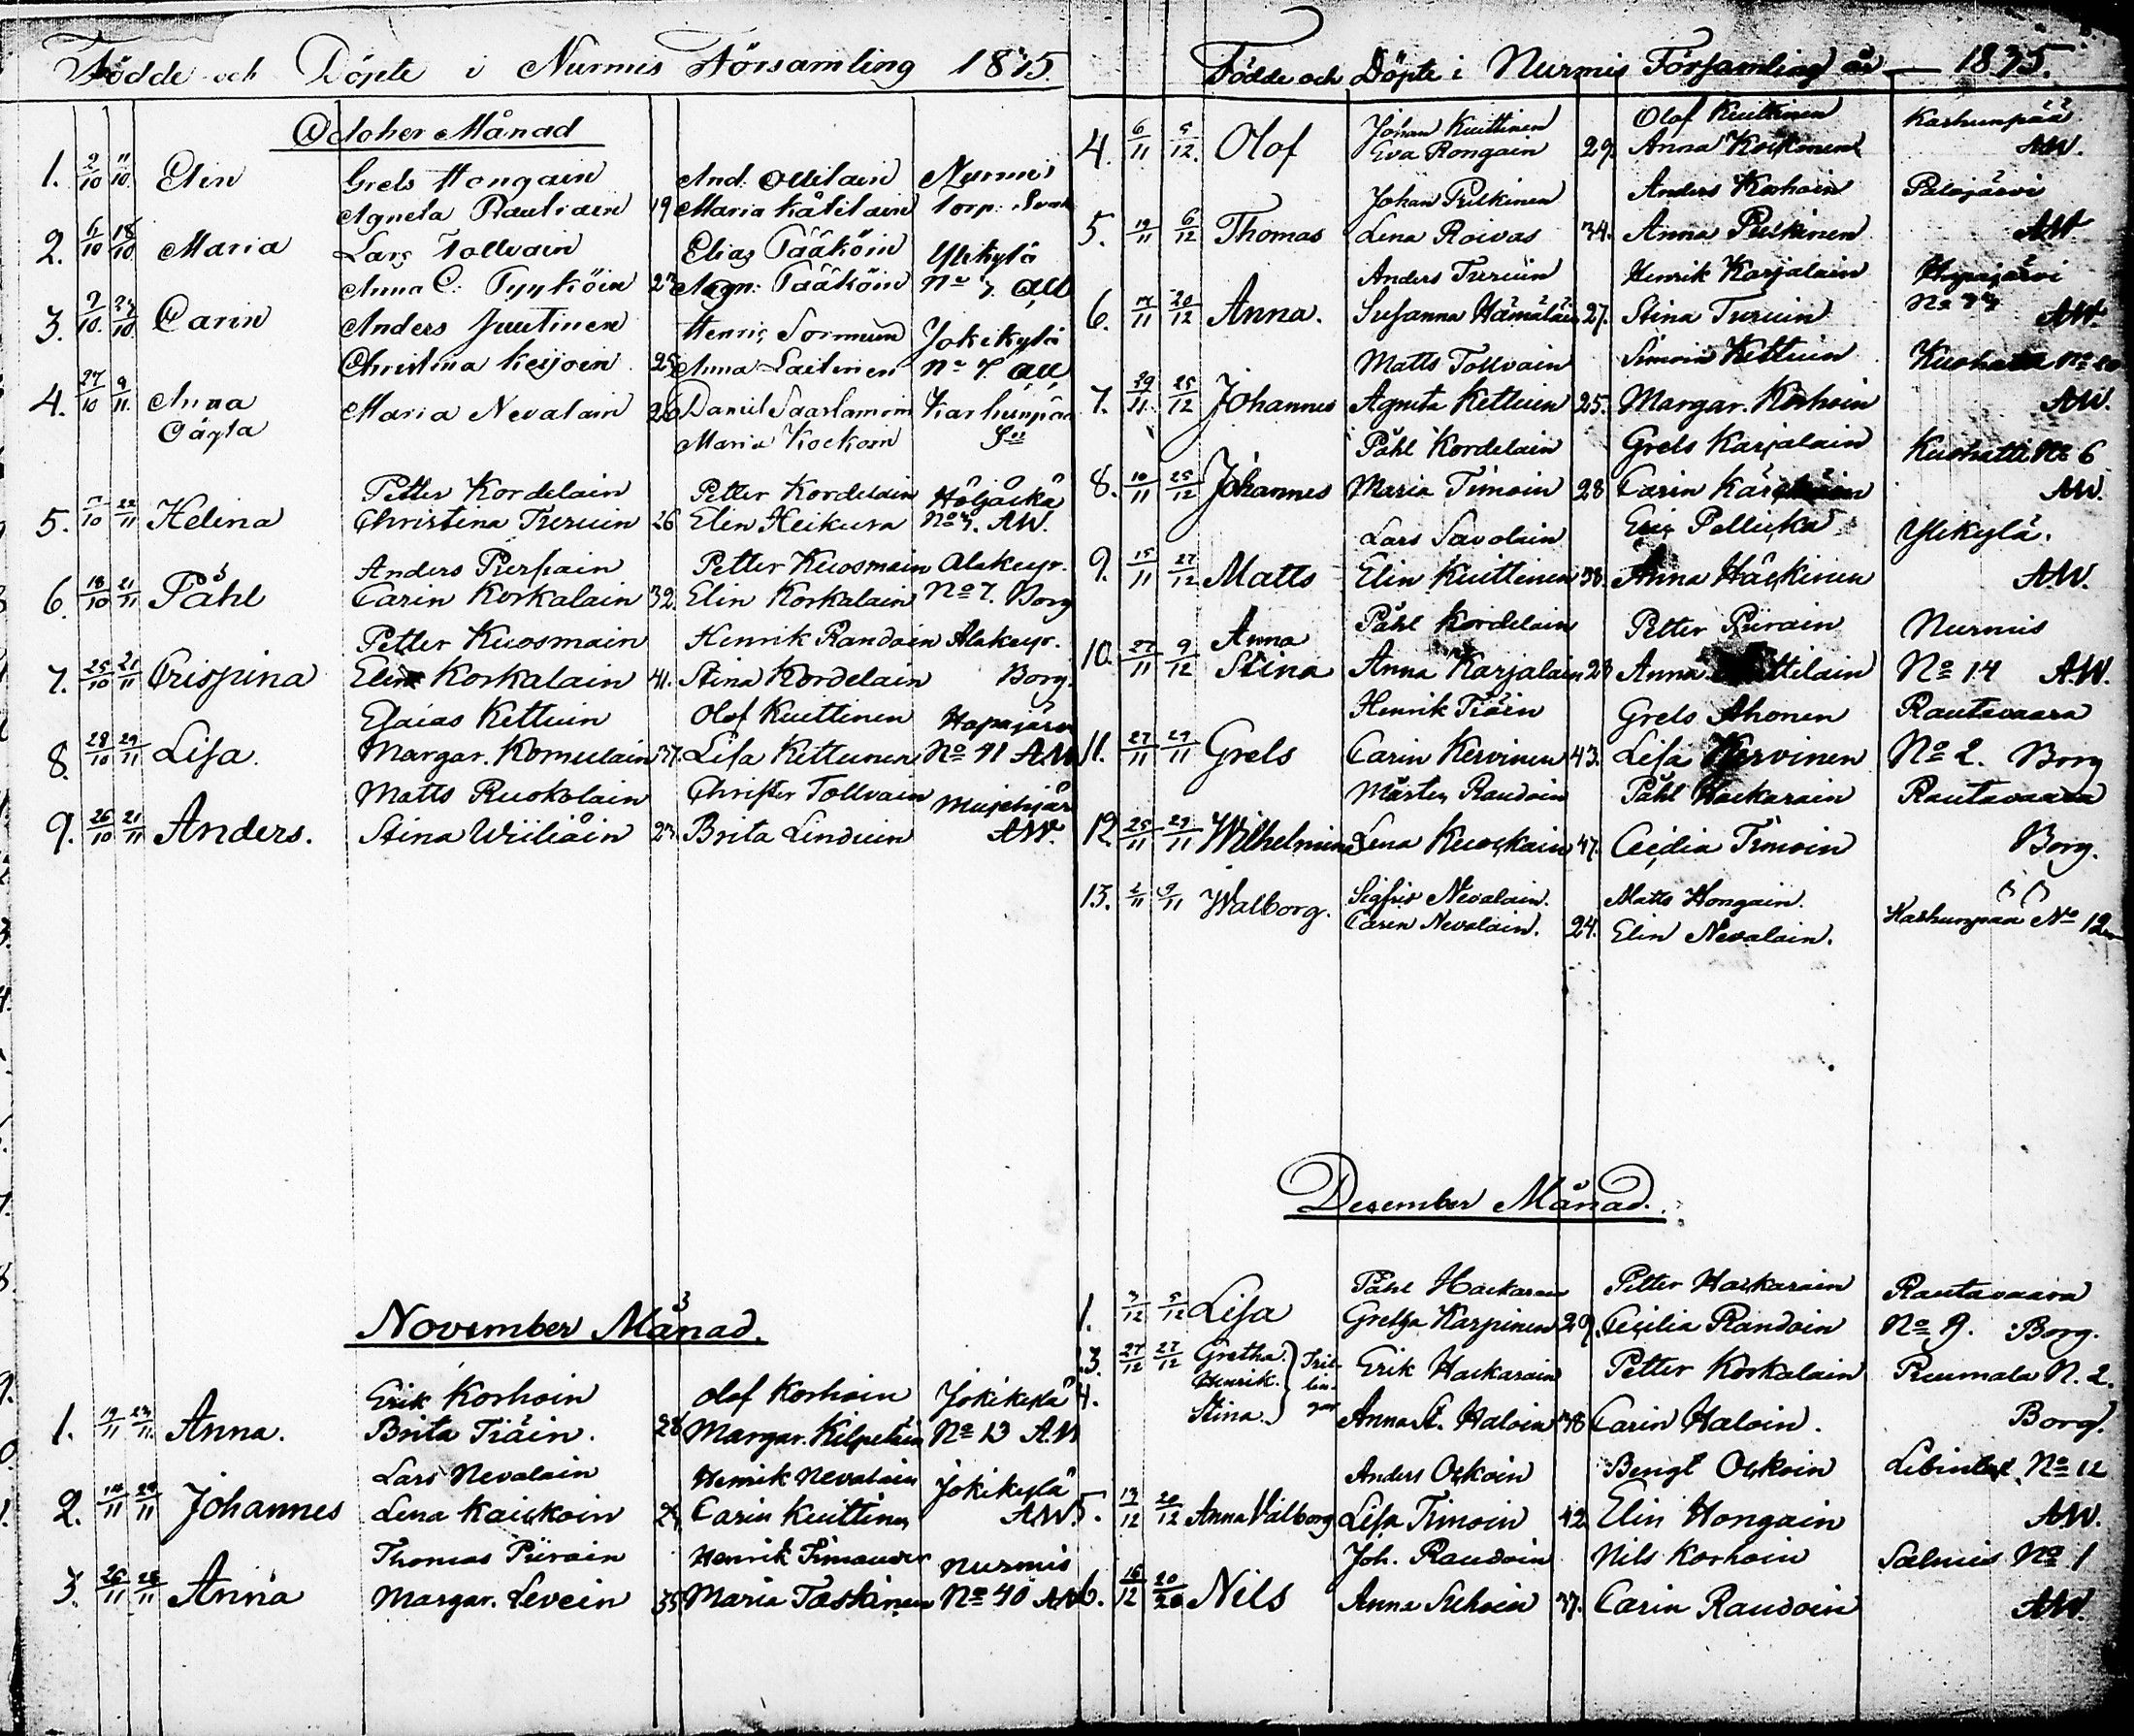 Födde och Döpte i Nurmis Församling 1835.
October Månad
1. 2/10 11/10 Elin Grels Hongain And: Ollilain Nurmis
Agneta Rautiain 19 Maria Kåtilain Torp:
2. 6/10 18/10 Maria Lars Tollvain Elias Tääköin Ylikylä
Anna C: Tyyköin 23 Agn: Tääköin No 7. All
3. 9/10 27/10 Carin Anders Juutinen Henric Sormuin Jokikylä
Christina Keijoin 25 Anna Laitinen No 7. All
4. 27/10 9/11 Anna Maria Nevalain 26 Daniel Saarlamoin Karhunpää
Cägla Maria Kockoin
Petter Kordelain Petter Kordelain Höljäckä
5. /10 22/11 Helina Christina Turuin 26 Elin Heikura No 7. AW.
Anders Purhain Petter Kuosmain Alakeyr.
6. 18/10 21/11 Påhl Carin Korkalain 32. Elin Korkalain No 7. Borg
Petter Kuosmain Henrik Randain Alakeyr.
7. 25/10 21/11 Crispina Elin Korkalain 41. Stina Kordelain Borg.
Esaias Kettuin Olof Kuittinen Hapajärvi
8. 28/10 29/11 Lisa. Margar. Komulain 37. Lisa Kettunen No 41 AW
Matts Ruokolain Christer Tollvain Mujehjär
9. 26/10 21/11 Anders. Stina Wiiliäin 23. Brita Linduin AW.
November Månad.
Erik Korhoin Olof Korhoin Jokikylä
1. 19/11 23/11 Anna. Brita Tiäin. 28 Margar. Kilpeläin No 13 A.W
Lars Nevalain Henrik Nevalain Jokikylä
2. 14/11 29/11 Johannes Lena Kaickoin 24 Carin Kuittinen AW.
Thomas Piirain Henrik Nurmis
3. 26/11 28/11 Anna Margar. Levein 35 Maria Taskinen No 40 AW
Födde och Döpte i Nurmis Församling år 1835.
Johan Kuittinen Olof Kuittinen Karhunpää
4. 6/11 5/12. Olof Eva Rongain 29. Anna Koikonen AW.
Johan Pulkinen Anders Korhoin Palojärvi
5. 19/11 6/12 Thomas Lena Roivas 34. Anna Pulkinen AW
Anders Turuin Henrik Karjalain Hapajärvi
6. 14/11 20/12 Anna. Susanna Hämäläin 27. Stina Turuin No 33 AW.
Matts Tollvain Simoin Kettuin Kuohatti No 20
7. 29/11. 25/12 Johannes Agneta Kettuin 25. Margar. Korhoin AW.
Påhl Kordelain Grels Karjalain Kuohatti No 6
8. 10/11 25/12 Johannes Maria Timoin 28 Carin AW.
Lars Savolain Eric Pellicka Ylikylä.
9. 15/11 27/12 Matts Elin Kuittinen 38. Anna Häckinen AW.
Anna Påhl Kordelain Petter Piirain Nurmis
10. 22/11 9/12 Stina Anna Karjalain 28 Anna No 14 A.W.
Henrik Tiäin Grels Ahonen Rautavaara
11. 27/11 29/11 Grels Carin Kervinen 43. Lisa Kervinen No 2. Borg
Mårten Raudoin Påhl Hackarain Rautavaara
12. 25/11 29/11 Wilhelmina Lena Kuockain 47. Cecilia Timoin Borg.
13. 2/11 9/11 Walborg. Sigfrid Nevalain. Matts Hongain.
Carin Nevalain. 24. Elin Nevalain. Karhunpää No 12
December Månad.
Påhl Hackarain Petter Hackarain Rautavaara
1. 3/12 5/12 Lisa Gretha Karpinen 29. Cecilia Randoin No 9. Borg.
3. 27/12 27/12 Gretha. Henrik. Tril- Erik Hackarain Petter Korkalain Puumala N. 2.
4. Stina. lin- gar Anna St. Haloin 38 Carin Haloin. Borg.
Anders Ockoin Bengt Ockoin No 12
5. 13/12 20/12 Anna Valborg Lisa Timoin 42 Elin Hongain AW.
Joh. Raudoin Nils Korhoin Salmis No 1
6. 16/12 20/20 Nils Anna Suhoin 37. Carin Raudoin AW.